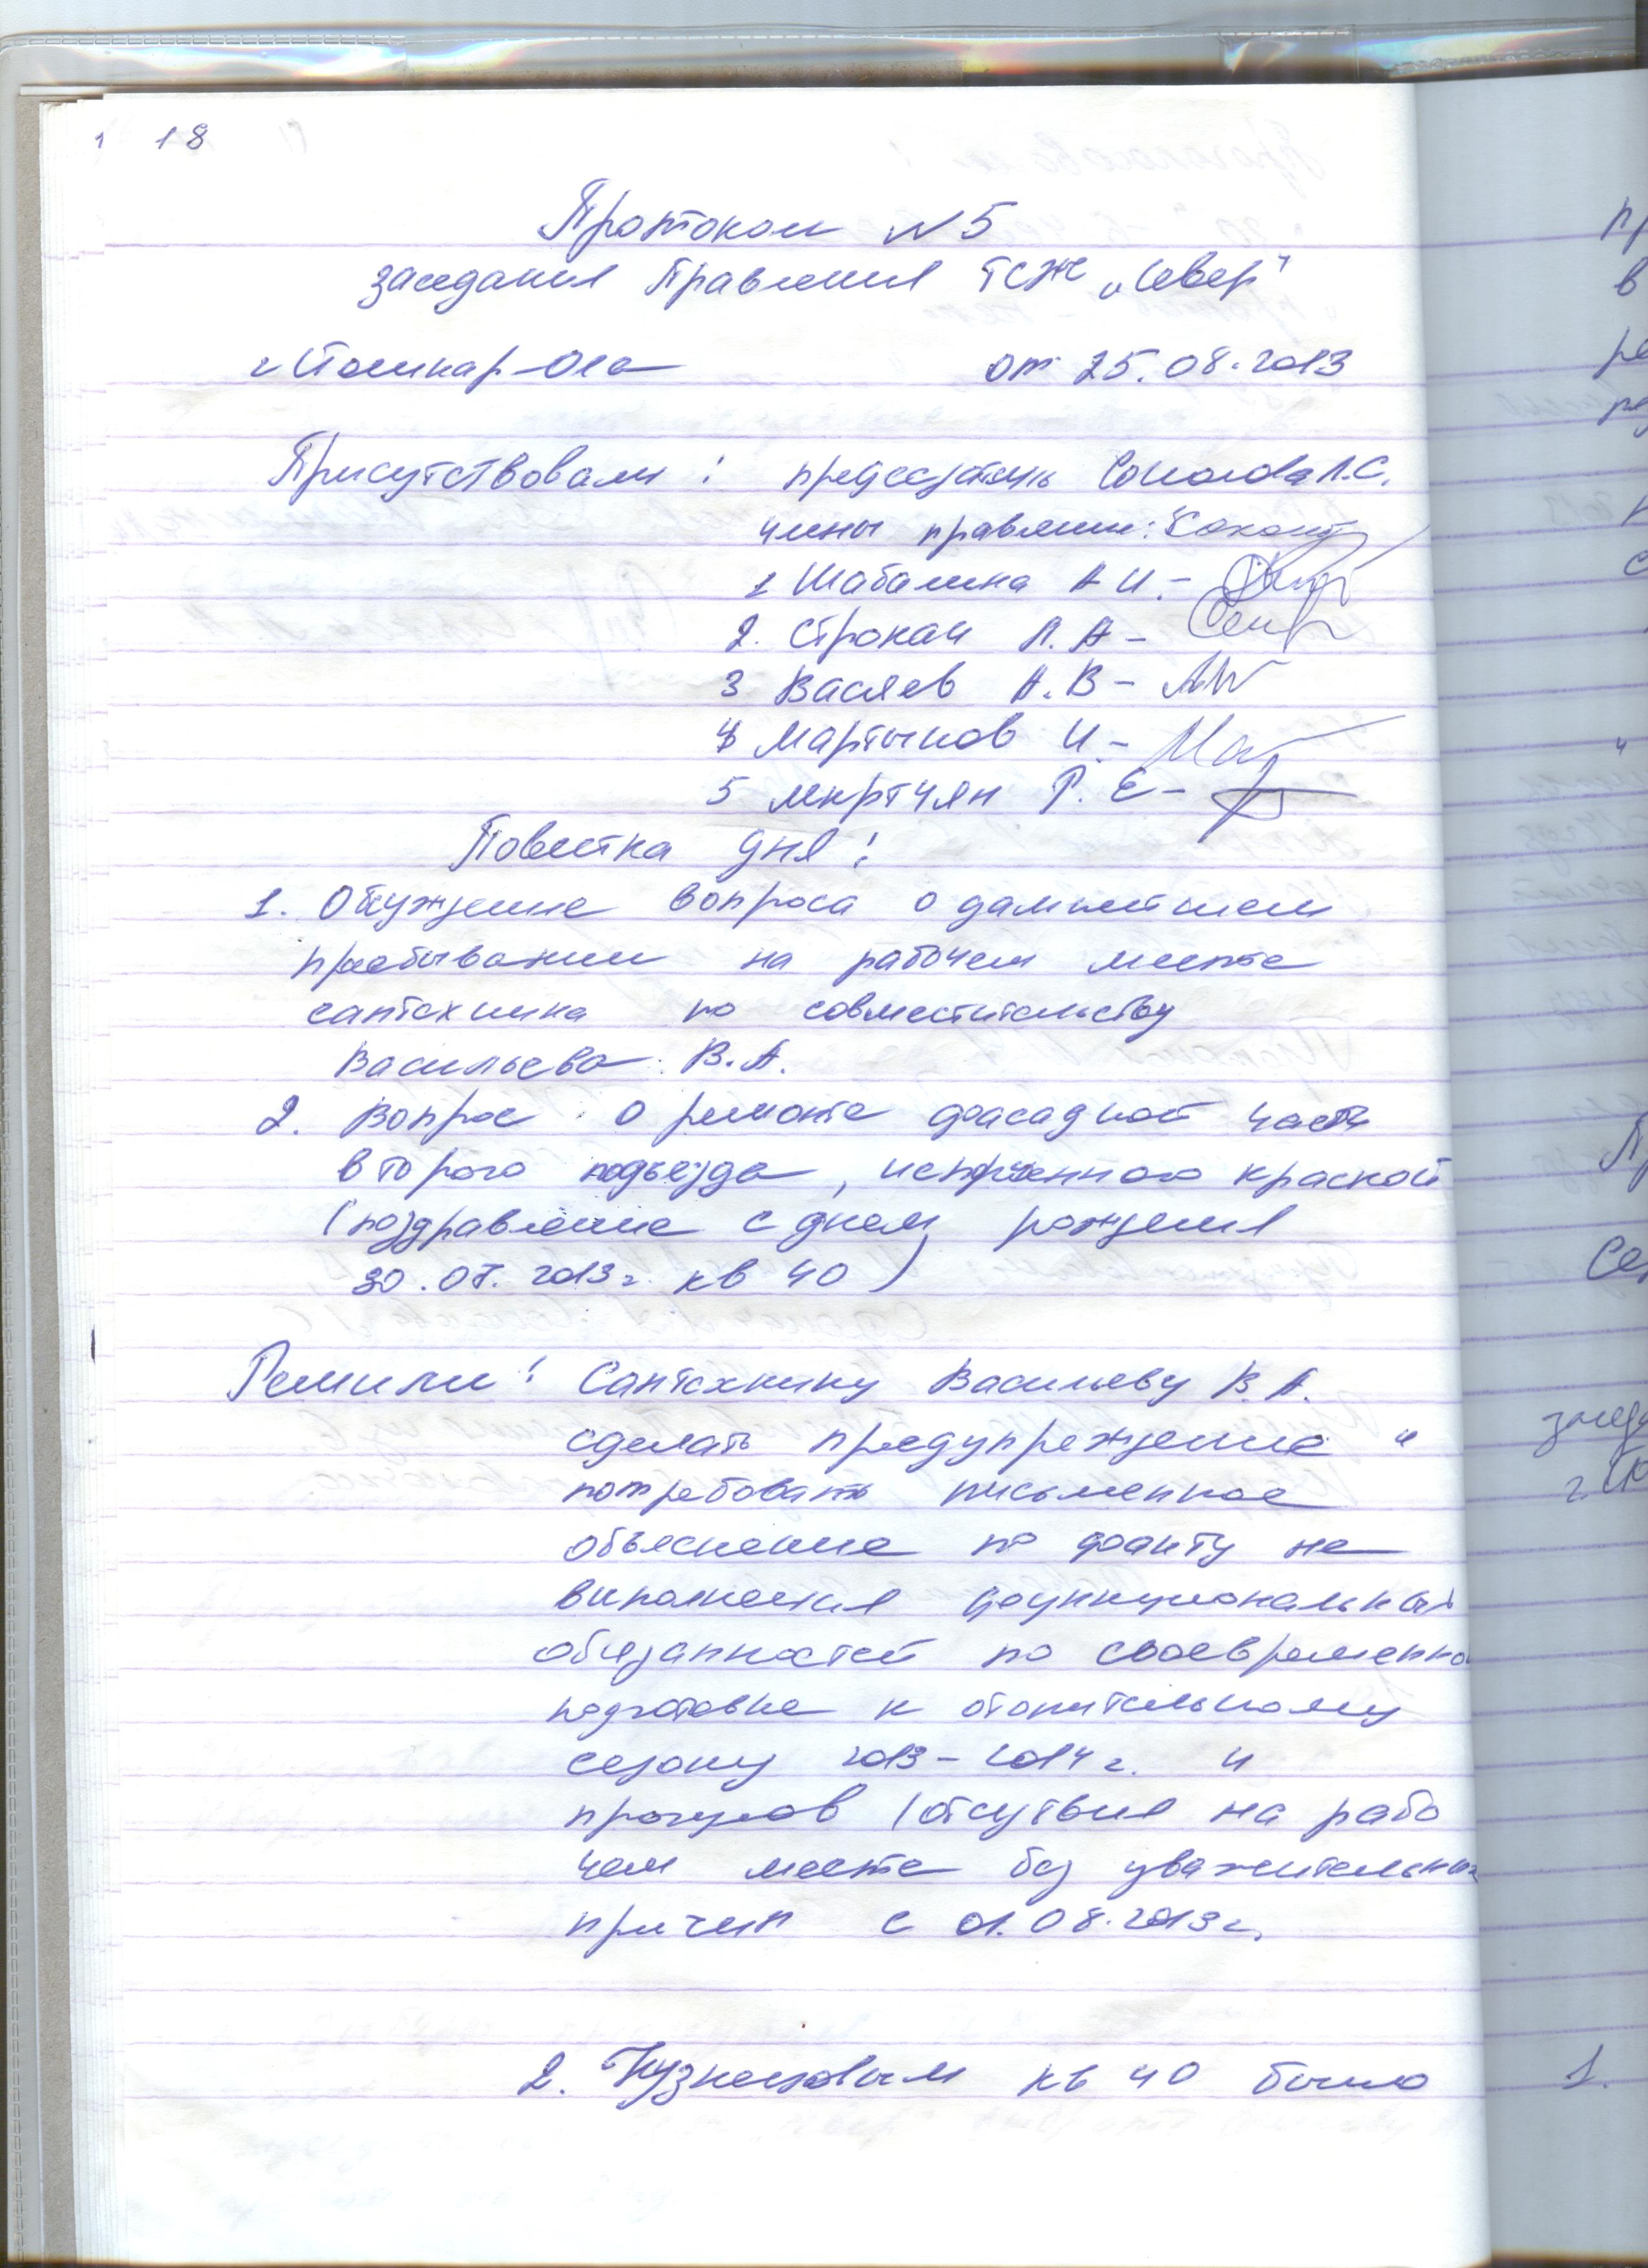 18
Протокол N 5
заседания Правления ТСЖ „Север"
г Йошкар-Ола от 25.08.2013
Присутствовали: председатель Л.С.
члены правления:
1 Шабалина А И. -
2. Строкан Л. А -
3 Васяев А. В -
4 Мартынов И. -
5 Мкртчян Р. Е -
Повестка дня:
1. Обсуждение вопроса о дальнейшем
пребывании на рабочем месте
сантехника по совместительству
Васильева В.А.
2. Вопрос о ремонте фасадной части
второго подъезда, краской
(поздравление с днем рождения
30.07.2013г. кв 40)
Решили: Сантехнику Васильеву В. А.
сделать предупреждение и
потребовать письменное
объяснение по факту не
выполнения функциональных
обязанностей по своевременной
подготовке к отопительному
сезону 2013-2014 г. и
прогулов (отсутвия на рабо
чем месте без уважительных
причин с 01.08.2013г.
2. Кузнецовым кв 40 было
1.